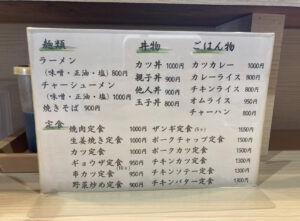 麺類
ラーメン
(味噌・正油・塩) 800円
チャーシューメン
(味噌・正油・塩) 1000円
焼きそば 900円
丼物
カツ丼 1000円
親子丼 900円
他人丼 900円
玉子丼 800円
ごはん物
カツカレー 1000円
カレーライス 800円
チキンライス 800円
オムライス 950円
チャーハン 800円
定食
焼肉定食 1000円
生姜焼き定食 1000円
カツ定食 1000円
ギョウザ定食 950円
串カツ定食 950円
野菜炒め定食 900円
ザンギ定食 1050円
ポークチャップ定食 1500円
ポークカツ定食 1500円
チキンカツ定食 1300円
チキンソテー定食 1300円
チキンバター定食 1300円